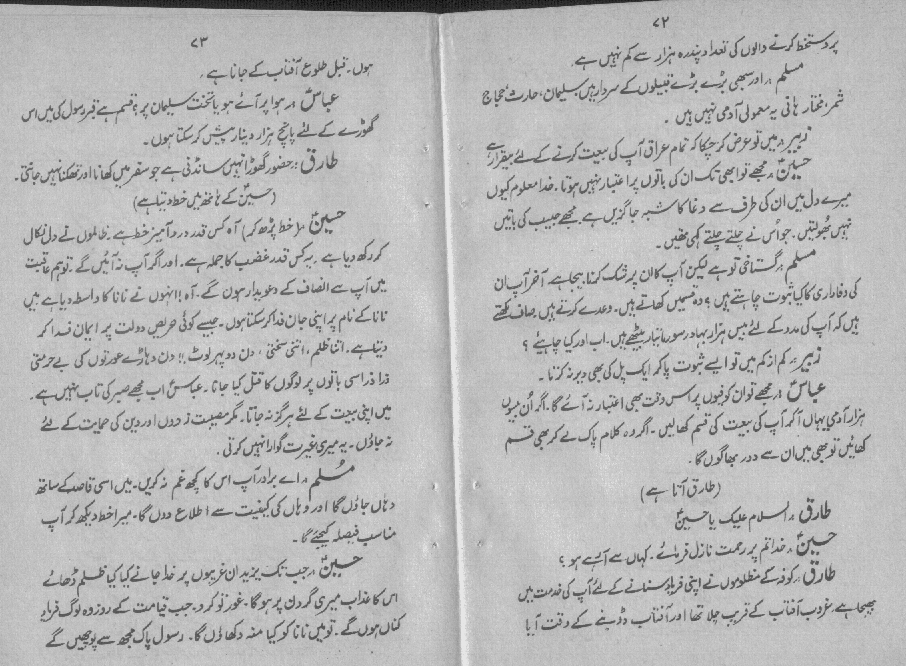 ۷۲
پر دستخط کرنے والوں کی تعداد پندرہ ہزار سے کم نہیں ہے۔
مسلم :۔ اور سبھی بڑے بڑے قبیلوں کے سردار ہیں سلیمان، حارث، حجاج
شمر، مختار، ہانی یہ معمولی آدمی نہیں ہیں۔
زبیر :۔ میں تو عرض کر چکا کہ تمام عراق آپ کی بیعت کرنے کے لئے بیقرار ہے
حسینؑ :۔ مجھے تو ابھی تک ان کی باتوں پر اعتبار نہیں ہوتا۔ خدا معلوم کیوں
میرے دل میں ان کی طرف سے دغا کا شبہ جاگزیں ہے۔ مجھے حبیب کی باتیں
نہیں بھولتیں۔ جو اس نے چلتے چلتے کہی تھیں۔
مسلم :۔ گستاخی تو ہے لیکن آپ کا ان پر شک کرنا بیجا ہے۔ آخر آپ ان
کی وفاداری کا کیا ثبوت چاہتے ہیں؟ وہ قسمیں کھاتے ہیں۔ وعدے کرتے ہیں صاف لکھتے
ہیں کہ آپ کی مدد کے لئے بیس ہزار بہادر سورما تیار بیٹھے ہیں۔ اب اور کیا چاہیئے؟
زبیر :۔ کم از کم میں تو ایسے ثبوت پا کر ایک پل کی بھی دیر نہ کرتا۔
عباسؑ :۔ مجھے تو ان کوفیوں پر اس وقت بھی اعتبار نہ آئے گا۔ اگر ان میں بیسوں
ہزار آدمی یہاں آکر آپ کی بیعت کی قسم کھا لیں۔ اگر وہ کلام پاک لے کر بھی قسم
کھائیں تو بھی میں ان سے دور بھاگوں گا۔
(طارق آتا ہے)
طارق :۔ السلام علیک یا حسینؑ
حسینؑ :۔ خدا تم پر رحمت نازل فرمائے۔ کہاں سے آئے ہو؟
طارق :۔ کوفہ کے مظلوموں نے اپنی فریاد سنانے کے لئے آپ کی خدمت میں
بھیجا ہے۔ غروب آفتاب کے قریب چلا تھا اور آفتاب ڈوبنے کے وقت آیا
۷۳
ہوں۔ قبل طلوع آفتاب کے جانا ہے۔
عباسؑ :۔ ہوا پر آئے ہو یا تخت سلیمان پر؟ قسم ہے قبر رسول کی میں اس
گھوڑے کے لئے پانچ ہزار دینار پیش کر سکتا ہوں۔
طارق :۔ حضور گھوڑا نہیں سانڈنی ہے جو سفر میں کھانا اور تھکنا نہیں جانتی۔
(حسینؑ کے ہاتھ میں خط دیتا ہے)
حسینؑ :۔ (خط پڑھ کر) آہ کس قدر درد آمیز خط ہے۔ ظالموں نے دل نکال
کر رکھ دیا ہے۔ یہ کس قدر غضب کا جملہ ہے۔ اور اگر آپ نہ آئیں گے۔ تو ہم عاقبت
میں آپ سے انصاف کے دعویدار ہوں گے۔ آہ! انہوں نے نانا کا واسطہ دیا ہے میں
نانا کے نام پر اپنی جان فدا کر سکتا ہوں۔ جیسے کوئی حریص دولت پر ایمان فدا کر
دیتا ہے۔ اتنا ظلم، اتنی سختی، دن دوپہر لوٹ!! دن دہاڑے عورتوں کی بے حرمتی
ذرا ذرا سی باتوں پر لوگوں کا قتل کیا جانا۔ عباسؑ اب مجھے صبر کی تاب نہیں ہے۔
میں اپنی بیعت کے لئے ہرگز نہ جاتا۔ مگر مصیبت زدوں اور دین کی حمایت کے لئے
نہ جاؤں۔ یہ میری غیرت گوارا نہیں کرتی۔
مسلم :۔ اے برادر آپ اس کا کچھ غم نہ کریں۔ میں اسی قاصد کے ساتھ
وہاں جاؤں گا اور وہاں کی کیفیت سے اطلاع دوں گا۔ میرا خط دیکھ کر آپ
مناسب فیصلہ کیجئے گا۔
حسینؑ :۔ جب تک یزید ان غریبوں پر خدا جانے کیا کیا ظلم ڈھائے
اس کا عذاب میری گردن پر ہوگا۔ غور تو کرو۔ جب قیامت کے روز وہ لوگ فریاد
کناں ہوں گے۔ تو میں نانا کو کیا منہ دکھاؤں گا۔ رسول پاک مجھ سے پوچھیں گے